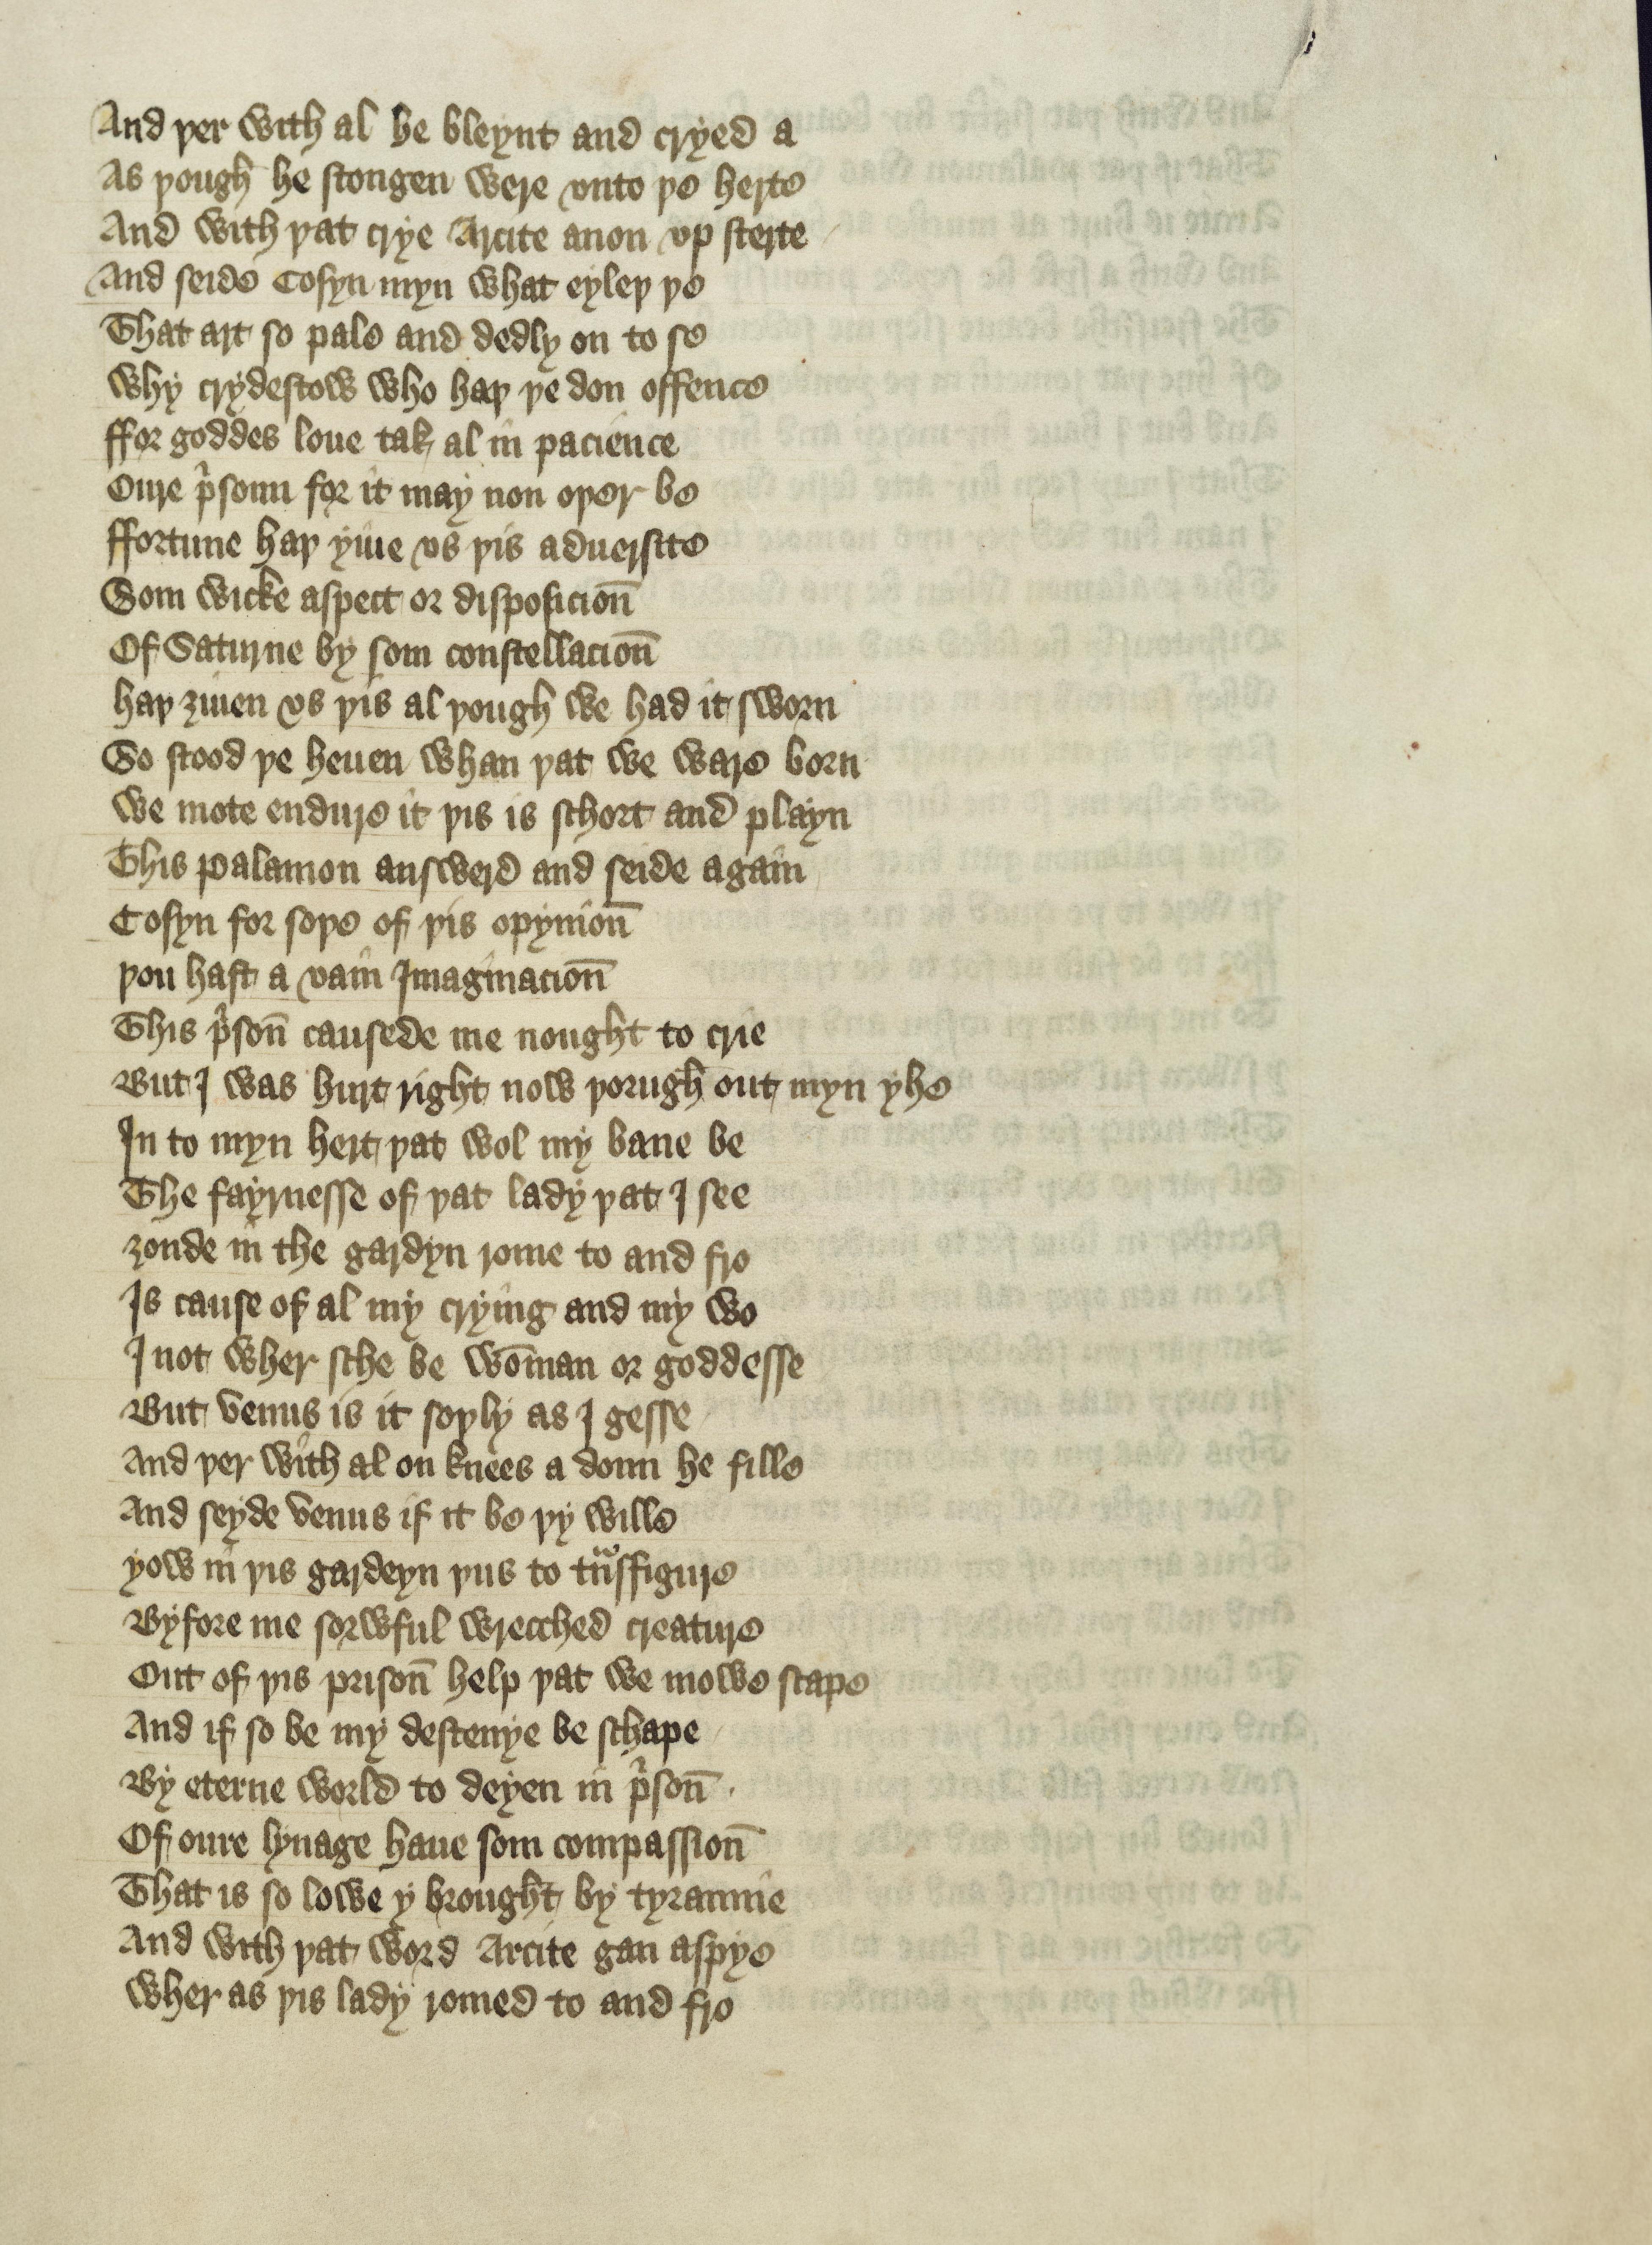 And þer with al he bleynt and cryed a
As þough he stongen were vnto þe herte
And with þat crye Arcite anon vp sterte
And seide Cosyn myn what eyleþ þe
That art so pale and dedly on to se
Why crydestow who haþ þe don offence
ffor goddes loue tak al in pacience
Oure p̍soun for it may non oþer be
ffortune haþ yiue vs þis aduersite
Som wicke aspect or disposicion̄
Of Saturne by som constellacion̄
haþ ȝiuen vs þis al þough we had it sworn
So stood þe heuen whan þat we ware born
We mote endure it þis is schort and playn
This Palamon answerd and seide again
Cosyn for soþe of þis opynion̄
þou hast a vain Imaginacion̄
This p̍son̄ causede me nought to crie
But I was hurt right now þorugh out myn yhe
In to myn hert þat wol my bane be
The fayrnesse of þat lady þat I see
ȝonde in the gardyn rome to and fro
Is cause of al my crying and my wo
I not wher sche be wōman or goddesse
But venus is it soþly as I gesse
And þer with al on knees a doun he fille
And seyde venus if it be þy wille
yow in þis gardeyn þus to tn̄sffigure
Byfore me sorwful wrecched creature
Out of þis prison̄ help þat we mowe scape
And if so be my destenye be schape
By eterne world to deyen in p̍son̄
Of oure lynage haue som compassion̄
That is so lowe y brought by tyrannie
And with þat word Arcite gan aspye
Wher as þis lady romed to and fro